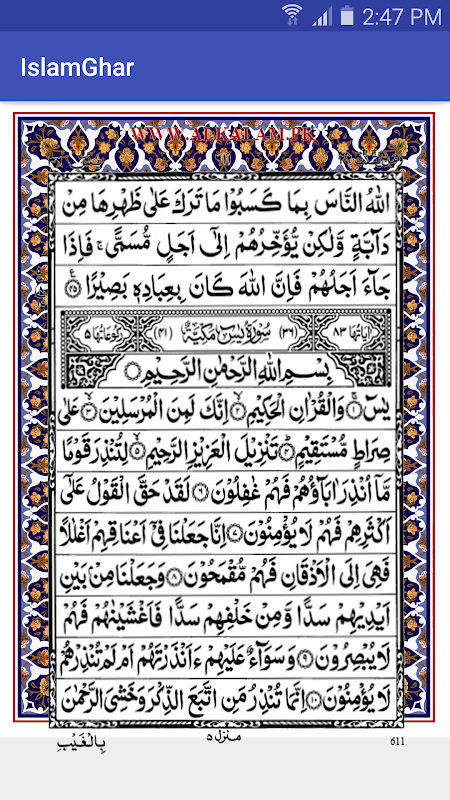 2:47 PM
IslamGhar
WWW.ALKALAM.PK
اللهُ النَّاسَ بِمَا كَسَبُوْا مَا تَرَكَ عَلٰى ظَهْرِهَا مِنْ
دَآبَّةٍ وَّلٰكِنْ يُّؤَخِّرُهُمْ اِلٰٓى اَجَلٍ مُّسَمًّى ۚ فَاِذَا
جَآءَ اَجَلُهُمْ فَاِنَّ اللهَ كَانَ بِعِبَادِهٖ بَصِيْرًا ﴿۴۵﴾
اٰيَاتُهَا ۸۳ (۳۶) سُوْرَةُ يٰسٓ مَكِّيَّةٌ (۴۱) رُكُوْعَاتُهَا ۵
بِسْمِ اللهِ الرَّحْمٰنِ الرَّحِيْمِ
يٰسٓ ﴿۱﴾ وَالْقُرْاٰنِ الْحَكِيْمِ ﴿۲﴾ اِنَّكَ لَمِنَ الْمُرْسَلِيْنَ ﴿۳﴾ عَلٰى
صِرَاطٍ مُّسْتَقِيْمٍ ﴿۴﴾ تَنْزِيْلَ الْعَزِيْزِ الرَّحِيْمِ ﴿۵﴾ لِتُنْذِرَ قَوْمًا
مَّآ اُنْذِرَ اٰبَآؤُهُمْ فَهُمْ غٰفِلُوْنَ ﴿۶﴾ لَقَدْ حَقَّ الْقَوْلُ عَلٰٓى
اَكْثَرِهِمْ فَهُمْ لَا يُؤْمِنُوْنَ ﴿۷﴾ اِنَّا جَعَلْنَا فِيْٓ اَعْنَاقِهِمْ اَغْلٰلًا
فَهِيَ اِلَى الْاَذْقَانِ فَهُمْ مُّقْمَحُوْنَ ﴿۸﴾ وَجَعَلْنَا مِنْۢ بَيْنِ
اَيْدِيْهِمْ سَدًّا وَّمِنْ خَلْفِهِمْ سَدًّا فَاَغْشَيْنٰهُمْ فَهُمْ
لَا يُبْصِرُوْنَ ﴿۹﴾ وَسَوَآءٌ عَلَيْهِمْ ءَاَنْذَرْتَهُمْ اَمْ لَمْ تُنْذِرْهُمْ
لَا يُؤْمِنُوْنَ ﴿۱۰﴾ اِنَّمَا تُنْذِرُ مَنِ اتَّبَعَ الذِّكْرَ وَخَشِيَ الرَّحْمٰنَ
بِالْغَيْبِ
منزل ۵
611